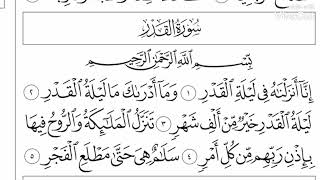 سُورَةُ القَدْرِ
بِسْمِ اللَّهِ الرَّحْمَٰنِ الرَّحِيمِ
إِنَّآ أَنزَلْنَٰهُ فِى لَيْلَةِ ٱلْقَدْرِ ١ وَمَآ أَدْرَىٰكَ مَا لَيْلَةُ ٱلْقَدْرِ ٢
لَيْلَةُ ٱلْقَدْرِ خَيْرٌ مِّنْ أَلْفِ شَهْرٍ ٣ تَنَزَّلُ ٱلْمَلَٰٓئِكَةُ وَٱلرُّوحُ فِيهَا
بِإِذْنِ رَبِّهِم مِّن كُلِّ أَمْرٍ ٤ سَلَٰمٌ هِىَ حَتَّىٰ مَطْلَعِ ٱلْفَجْرِ ٥